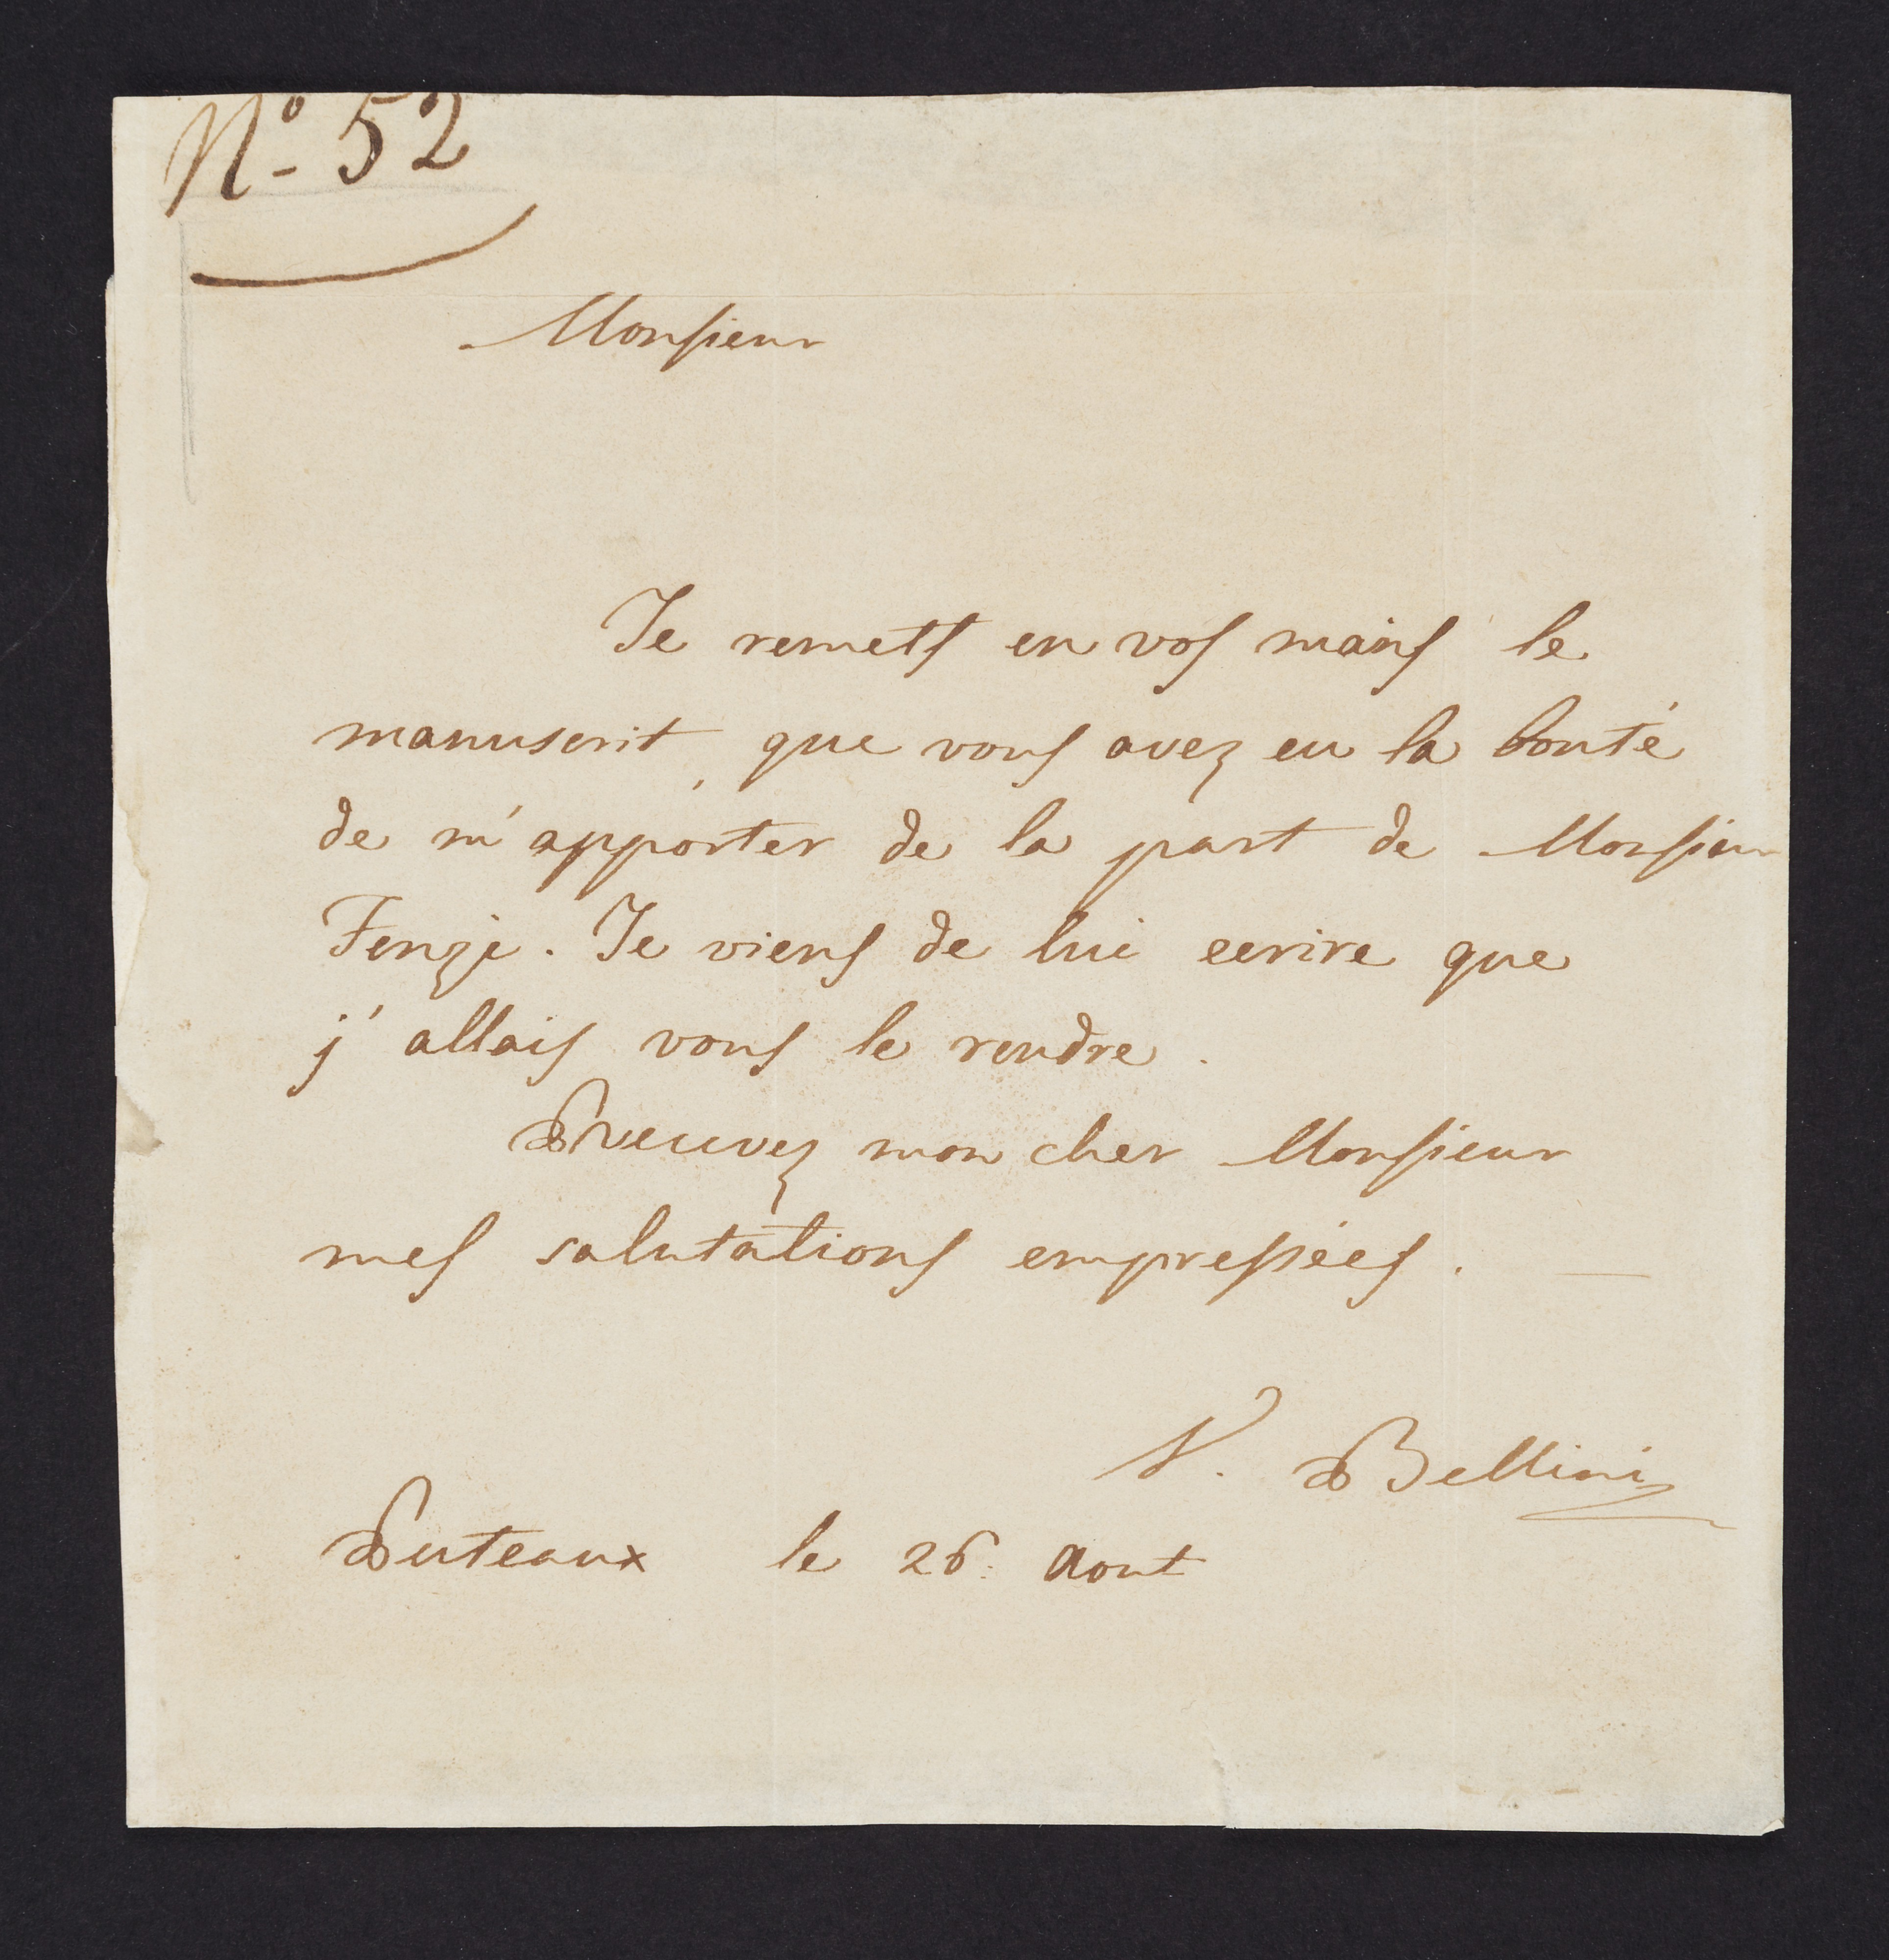 Nº 52
Monsieur
Je remets en vos mains le
manuscrit, que vous avez eu la bonté
de m'apporter de la part de Monsieur
Fenzi. Je viens de lui ecrire que
j'allais vous le rendre.
Preuvez mon cher Monsieur
mes salutations empressées. —
V. Bellini
Puteaux le 26. Aout